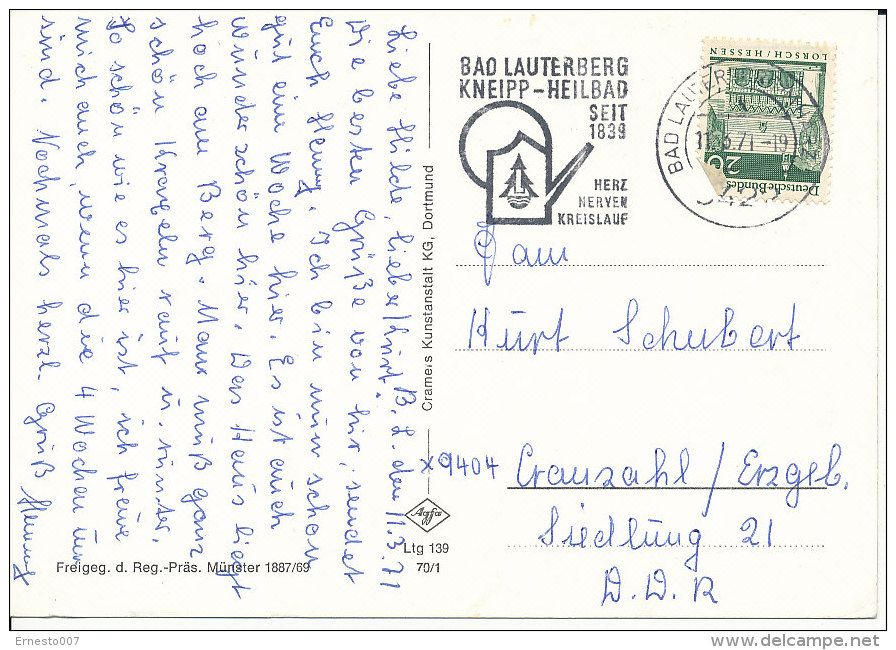 B. L. den 11.3.71
Liebe Hilde, lieber Kurt.
Die besten Grüße von hir, sendet
Euch Henny. Ich bin nun schon
gut eine Woche hier. Es ist auch
wunderschön hier. Das Haus liegt
hoch am Berg. Man muß ganz
schön Kraxeln rauf u. runter.
So schön wie es hier ist, ich freue
mich auch, wenn die 4 Wochen um
sind. Nochmals herzl. Gruß Henny
Freigeg. d. Reg.-Präs. Münster 1887/69
Cramers Kunstanstalt KG, Dortmund
Agfa
Ltg 139
70/1
BAD LAUTERBERG
KNEIPP-HEILBAD
SEIT
1839
HERZ
NERVEN
KREISLAUF
BAD LAUTERBERG
3422
LORSCH / HESSEN
20
Deutsche Bundes
Fam
Kurt Schubert
x9404 Cranzahl / Erzgeb.
Siedlung 21
D.D.R
Ernesto007
delcampe.net